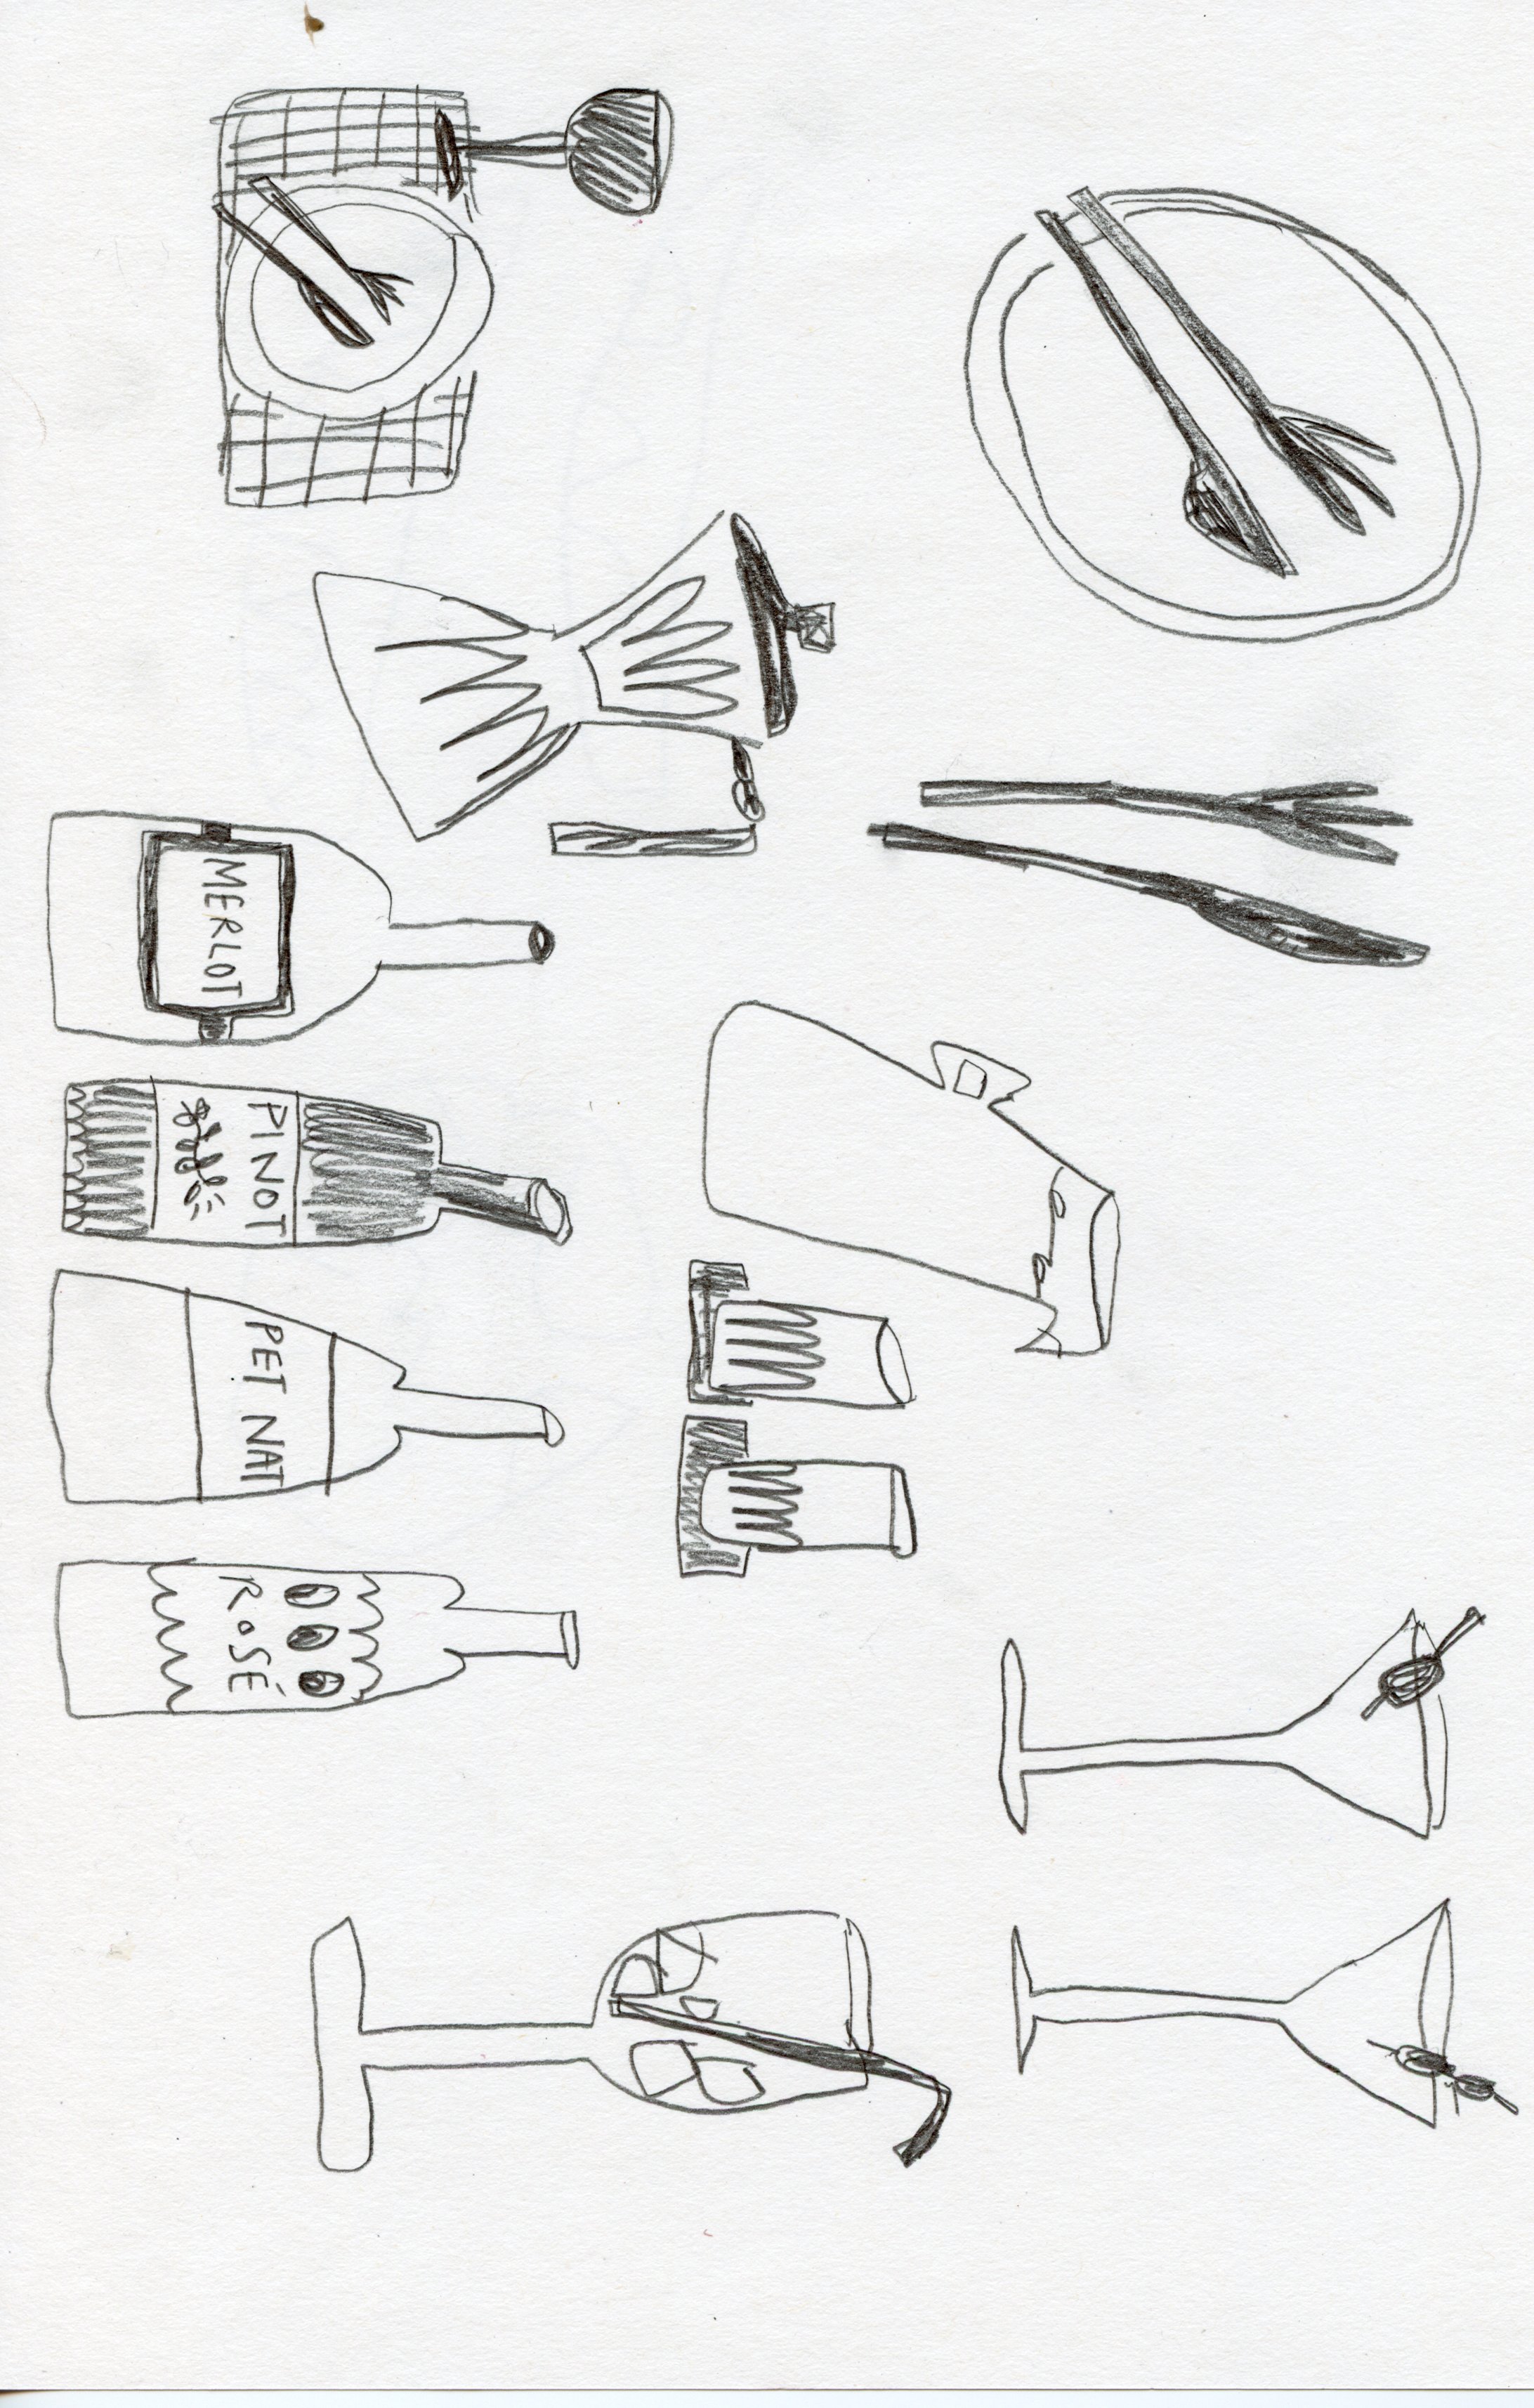 MERLOT
PINOT
PET NAT
ROSÉ